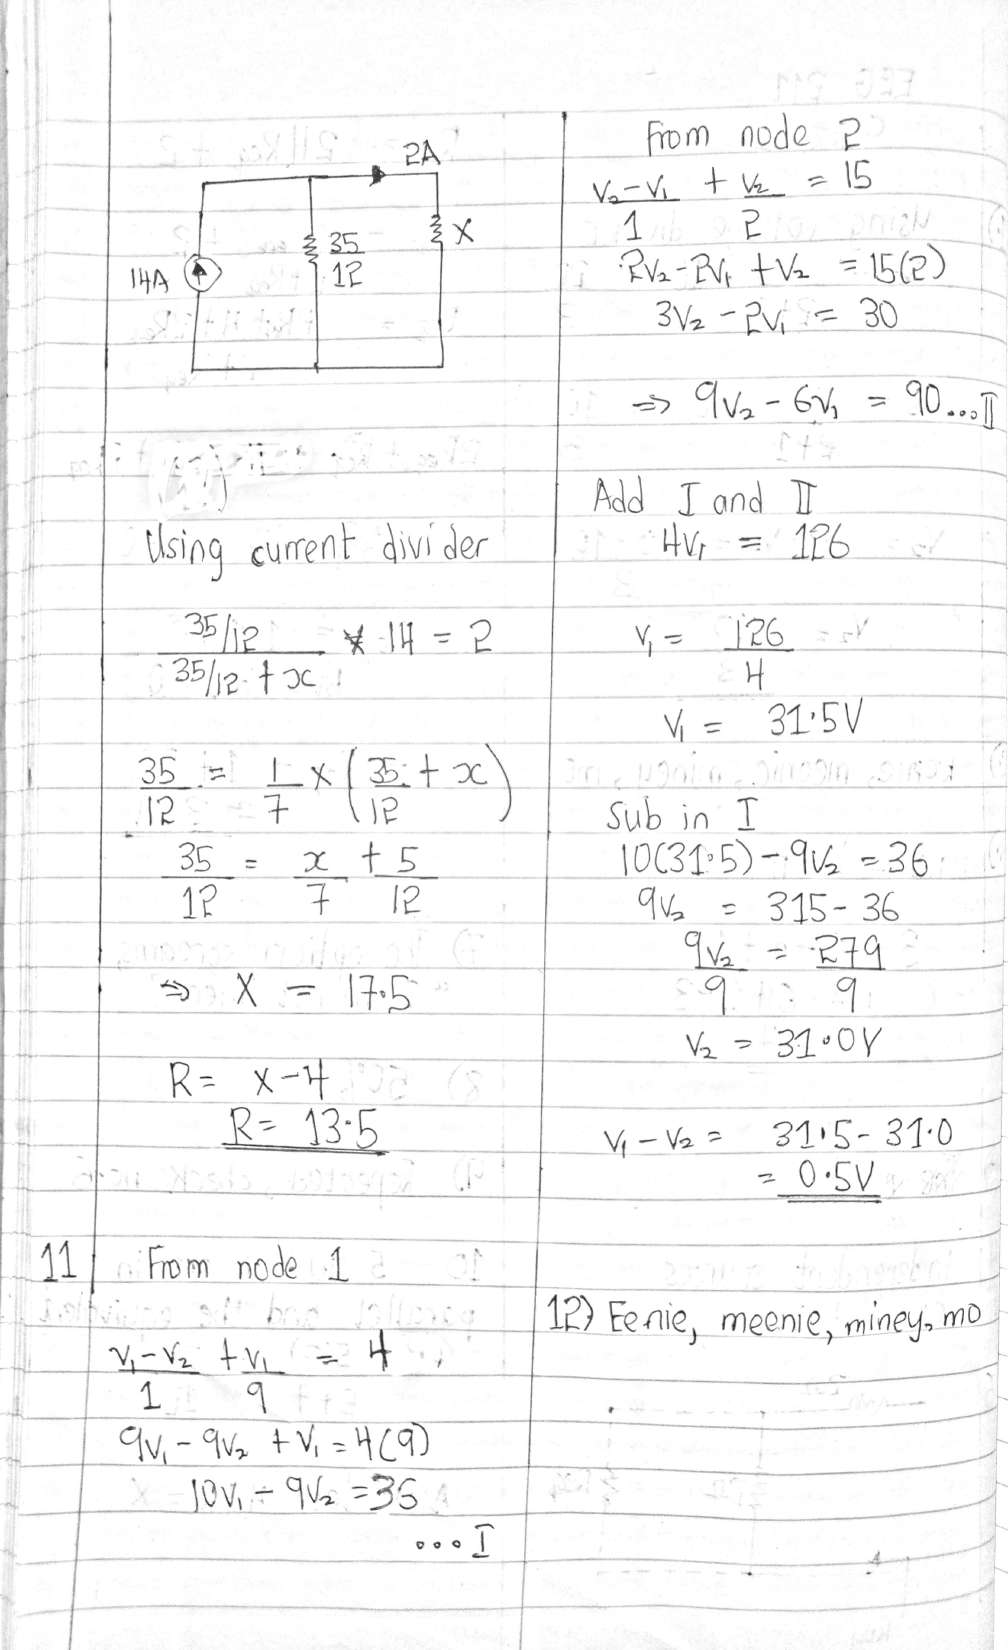 2A
14A
35
12
X
Using current divider
35/12 × 14 = 2
35/12 + x
35 = 1 × (35 + x)
12 7 12
35 = x + 5
12 7 12
⇒ X = 17.5
R = X - 4
R = 13.5
11 From node 1
V₁-V₂ + V₁ = 4
1 9
9V₁ - 9V₂ + V₁ = 4(9)
10V₁ - 9V₂ = 36
...I
From node 2
V₂-V₁ + V₂ = 15
1 2
2V₂-2V₁ + V₂ = 15(2)
3V₂ - 2V₁ = 30
⇒ 9V₂ - 6V₁ = 90...II
Add I and II
4V₁ = 126
V₁ = 126
4
V₁ = 31.5V
Sub in I
10(31.5) - 9V₂ = 36
9V₂ = 315 - 36
9V₂ = 279
9 9
V₂ = 31.0V
V₁ - V₂ = 31.5 - 31.0
= 0.5V
12) Eenie, meenie, miney, mo